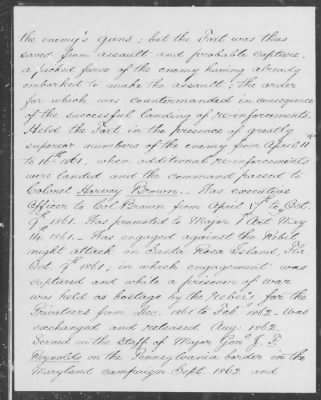 the enemy's guns; but the Fort was thus
saved from assault and probable capture,
a picked force of the enemy having already
embarked to make the assault; the order
for which was countermanded in consequence
of the successful landing of re-inforcements.
Held the Fort in the presence of greatly
superior numbers of the enemy from April 11th
to 16th 1861, when additional re-inforcements
were landed and the command passed to
Colonel Harvey Brown. Was executive
Officer to Col Brown from April to Oct.
9th 1861. Was promoted to Major 1st Art. May
14th 1861. Was engaged against the Rebel
night attack on Santa Rosa Island, Fla
Oct. 9th 1861, in which engagement was
captured and while a prisoner of war
was held as hostage by the Rebels for the
Privateers from Nov. 1861 to Feb. 1862. Was
exchanged and released Aug. 1862.
Served on the Staff of Major Genl J. F.
Reynolds on the Pennsylvania border in the
Maryland campaign Sept. 1862 and